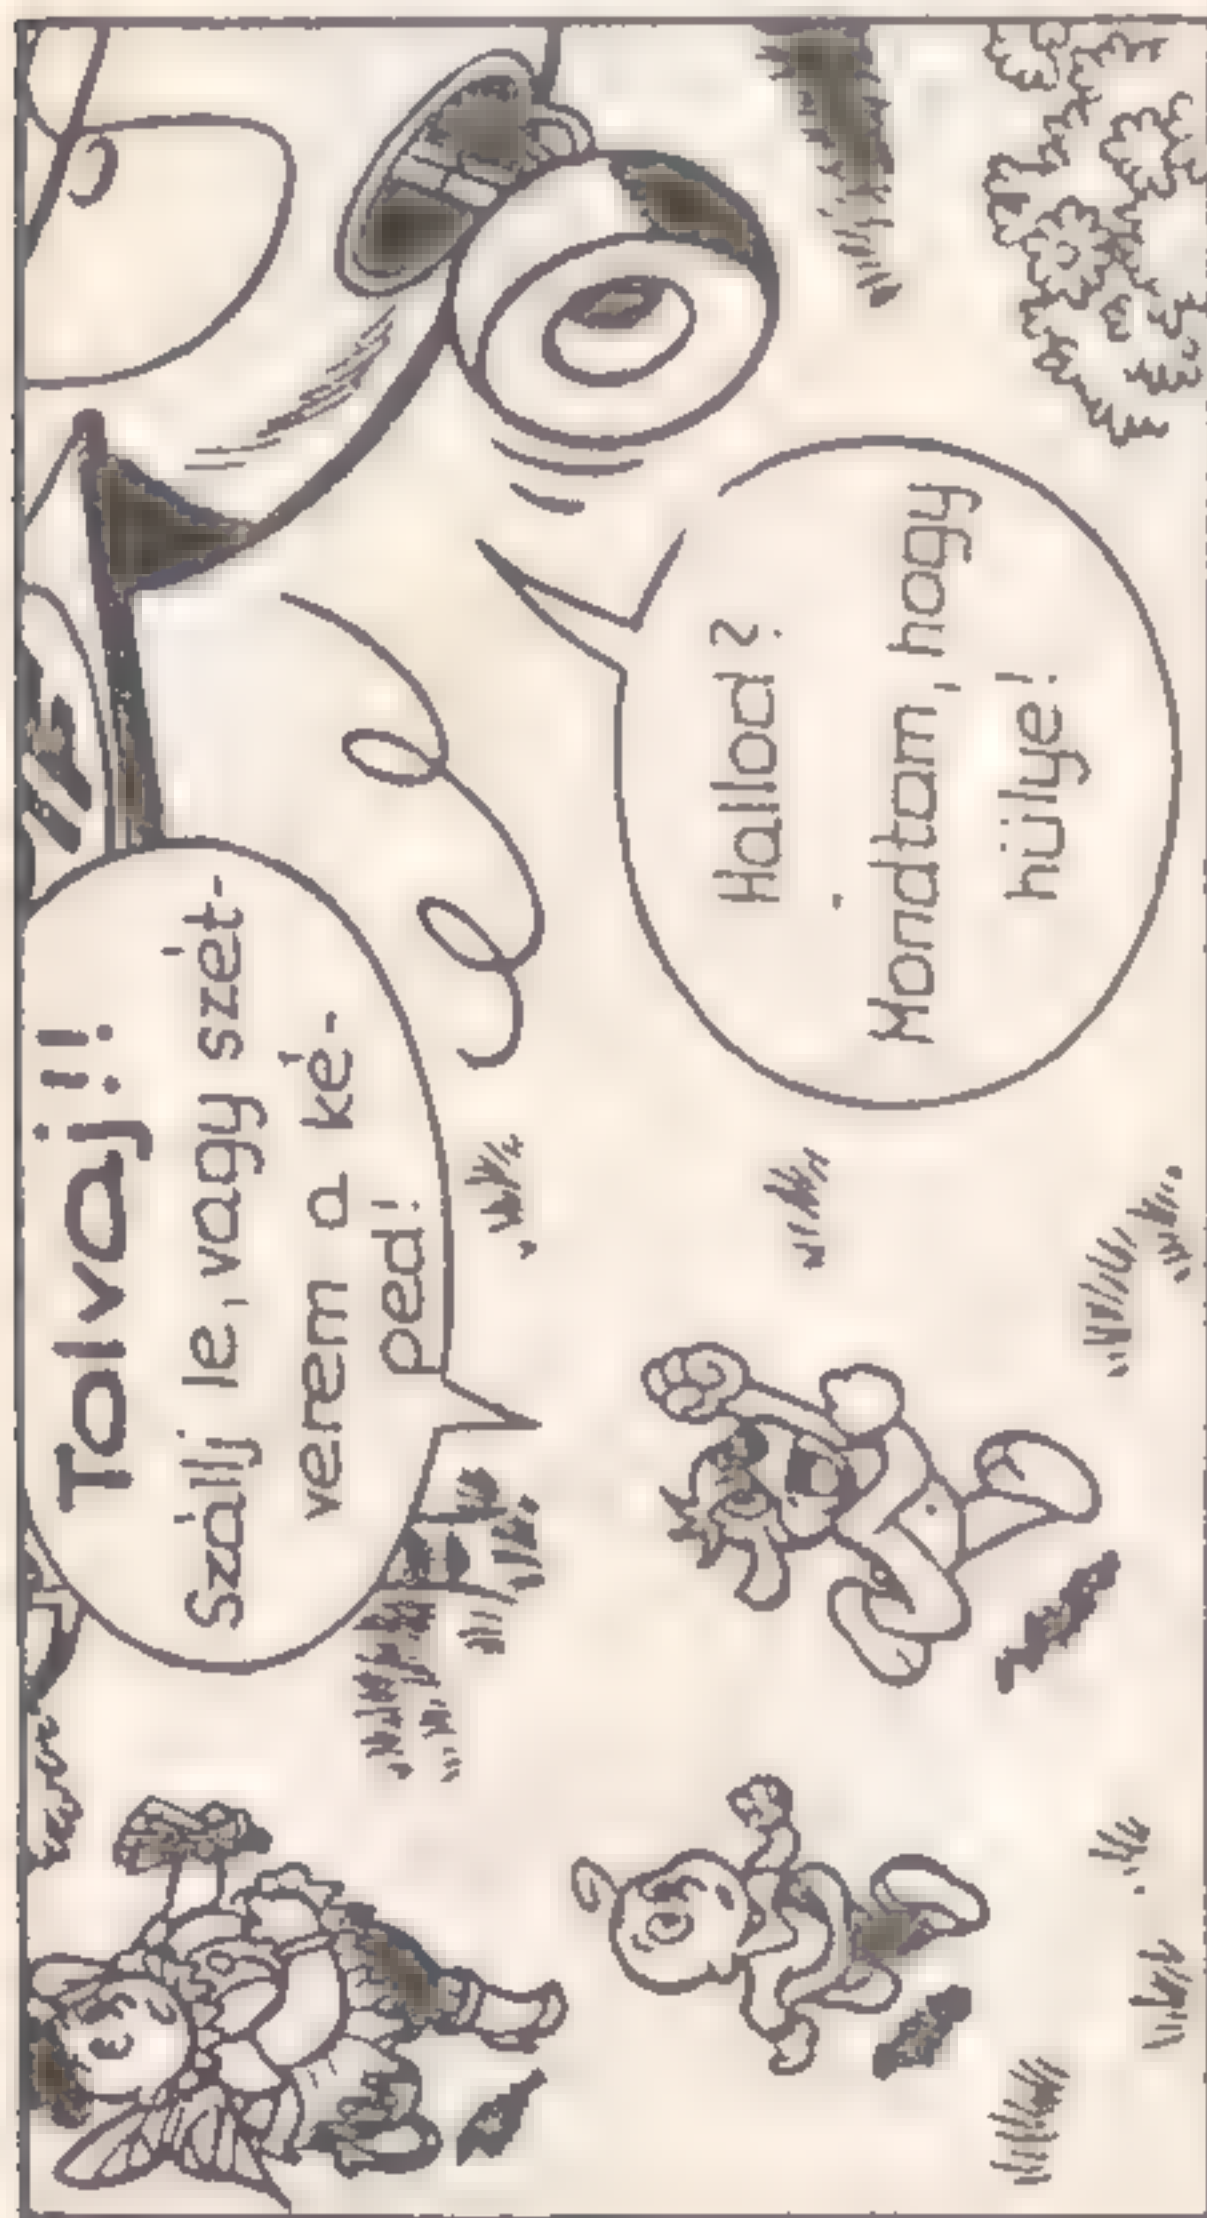 Tolvaj!!
Szállj le, vagy szét-
verem a ké-
ped!
Hallod?
Mondtam, hogy
hülye!